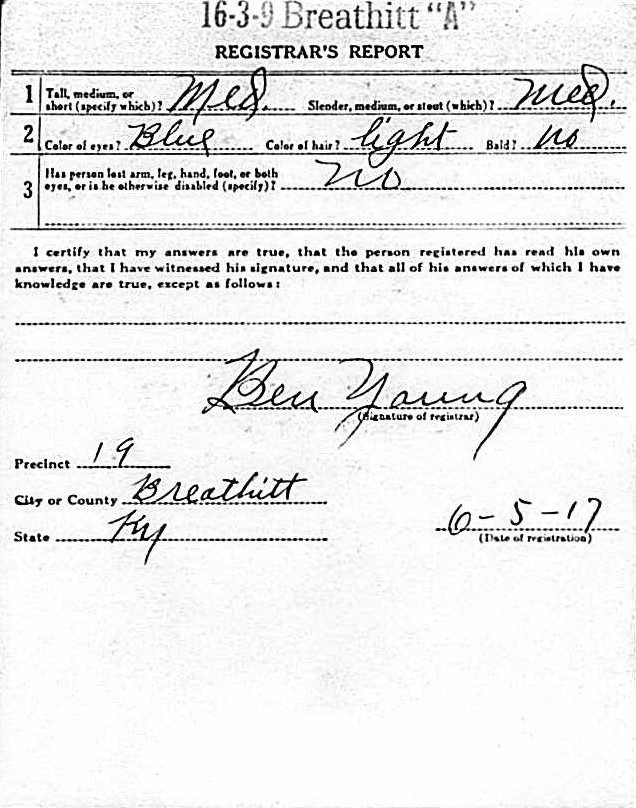 16-3-9 Breathitt "A"
REGISTRAR'S REPORT
1 Tall, medium, or short (specify which)? Med. Slender, medium, or stout (which)? Med.
2 Color of eyes? Blue Color of hair? light Bald? no
3 Has person lost arm, leg, hand, foot, or both
eyes, or is he otherwise disabled (specify)? no
I certify that my answers are true, that the person registered has read his own
answers, that I have witnessed his signature, and that all of his answers of which I have
knowledge are true, except as follows:
Ben Young
(Signature of registrar)
Precinct 19
City or County Breathitt
State Ky
6-5-17
(Date of registration)